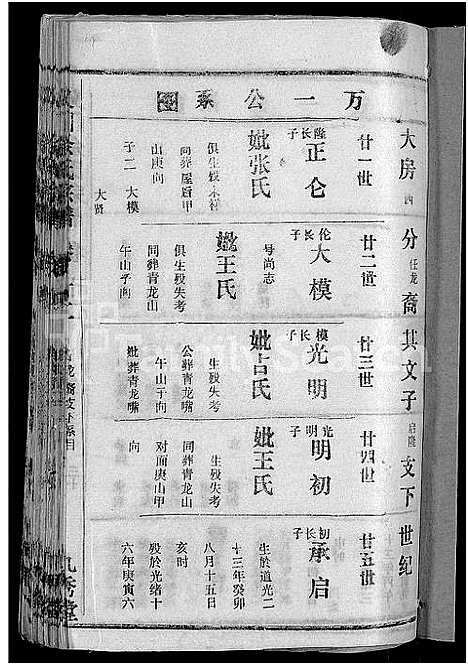 万一公系图
大房 西 分 任龙 裔其文子 启隆 文下世纪
廿一世
隆长子 正仑
妣张氏
俱生殁未祥
同葬屋后甲
山庚向
子二 大模
大贤
廿二世
伦长子 大模
号尚志
妣王氏
俱生殁失考
同葬青龙山
午山子向
廿三世
模长子 光明
妣占氏
生殁失考
公葬青龙嘴
午山子向
妣葬青龙嘴
廿四世
光明子 明初
妣王氏
生殁失考
同葬青山
对面庚山甲
向
廿五世
初长子 承启
生於道光二
十三年癸卯
八月十五日
亥时
殁於光绪十
六年庚寅六